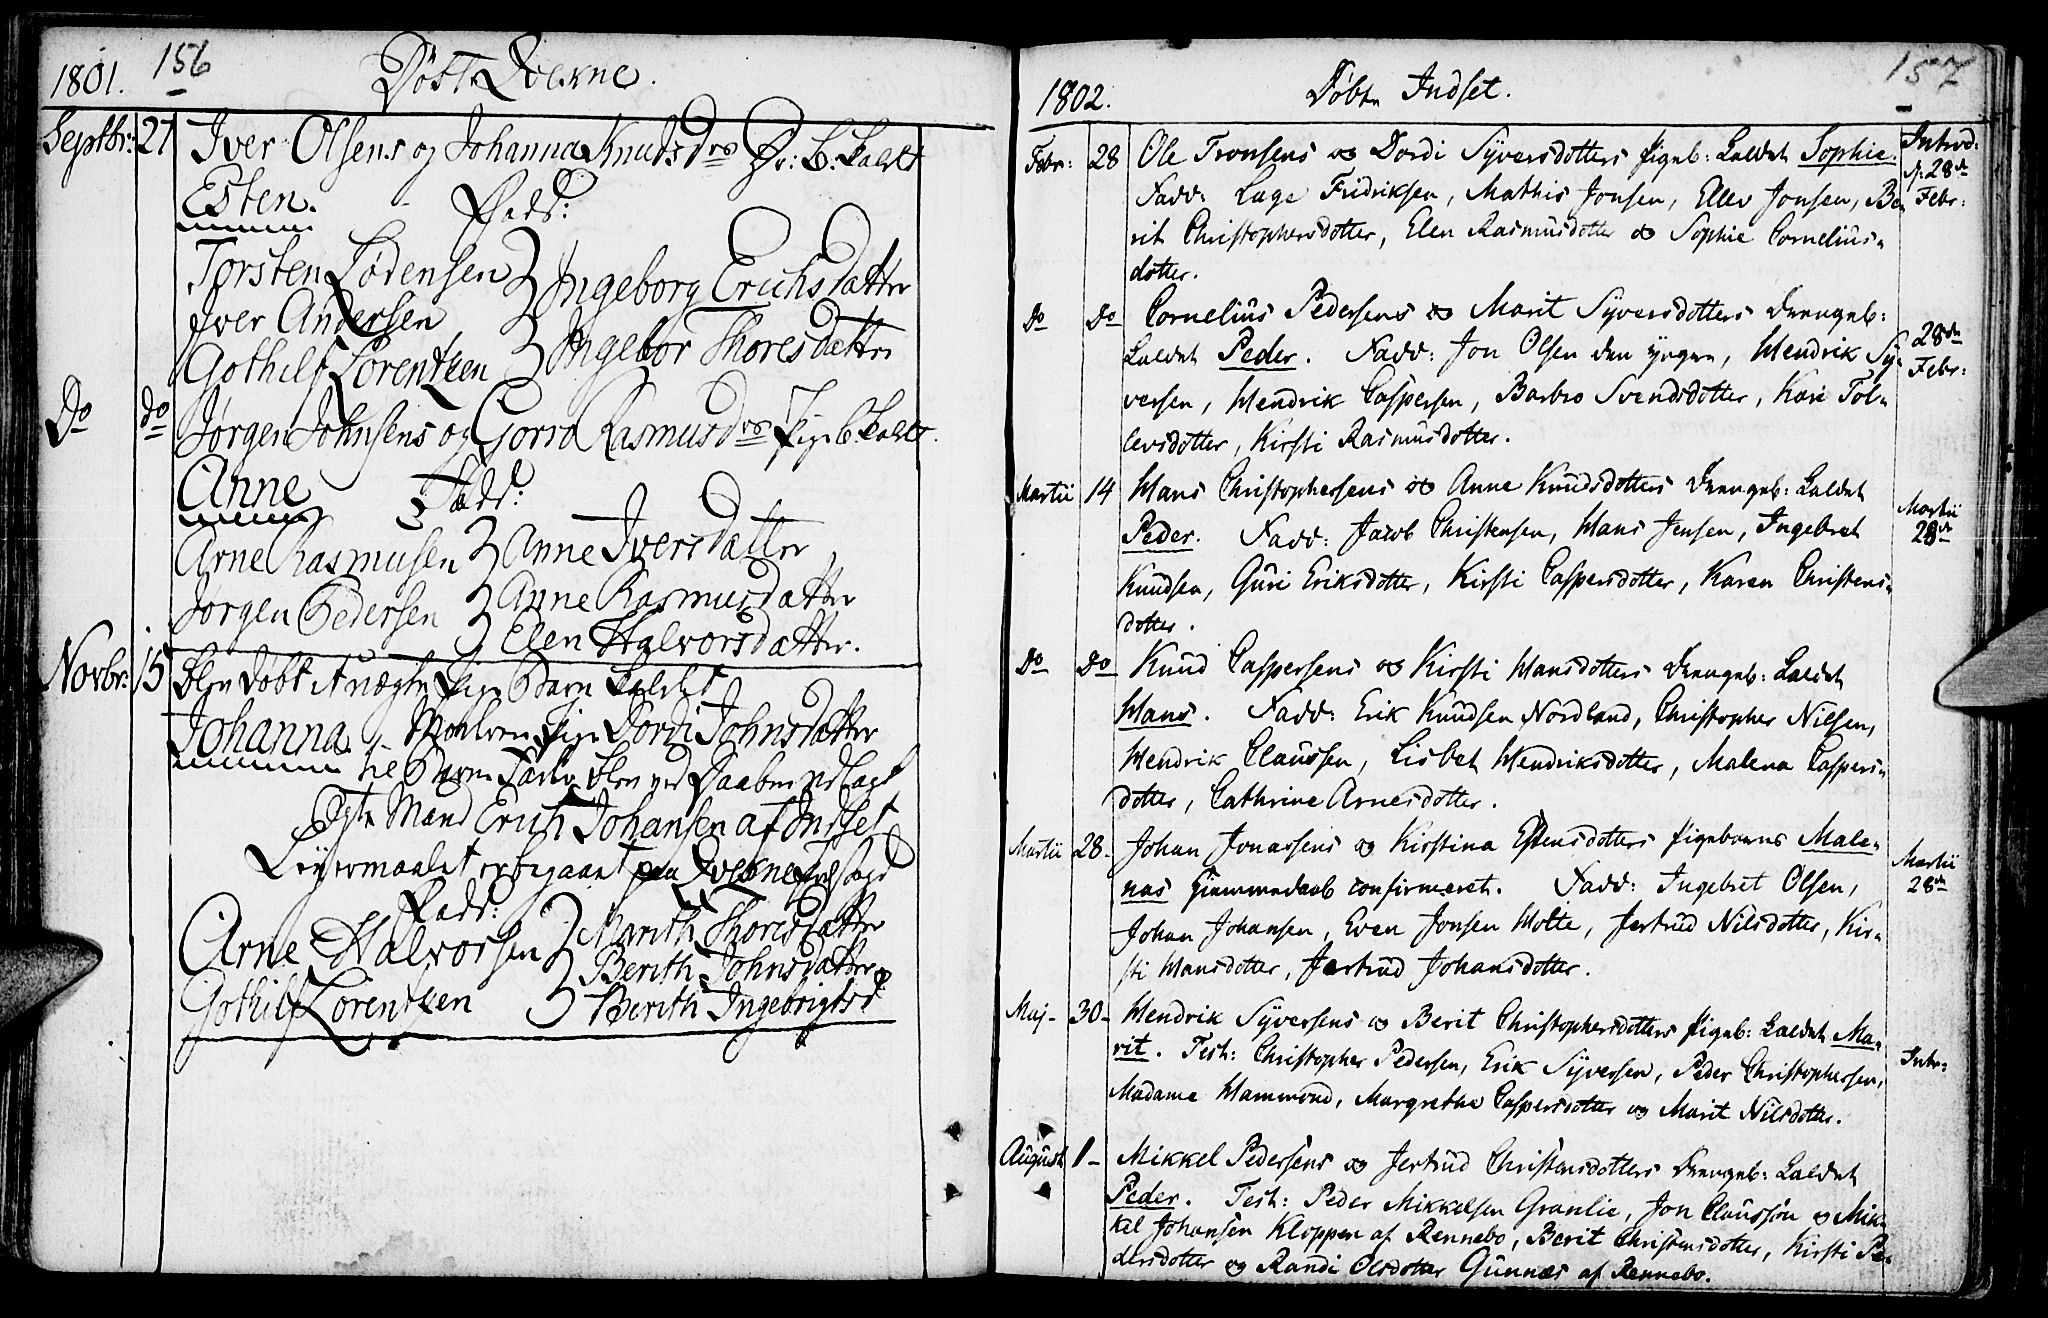 156
1801. Døbte Qvekne.
Septbr: 27 Iver Olsens og Johanna Knuds Drs Dr: B: kaldt
Esten. Fadd:
Torsten Lodensen Ingeborg Erichsdatter
Iver Andersen
Gothilf Lorentzen Ingebor Thoresdatter
Do do Jørgen Johnsens og Gorro Rasmus Drs Pige b. kaldt
Anne Fadd:
Arne Rasmusen Anne Iversdatter
Jørgen Pedersen Anne Rasmusdatter
Elen Halvorsdatter.
Novbr: 15 Blev døbt et uægte Pige Barn kaldet
Johanna. Moderen Pige Dordi Johnsdatter
til Barne Fader blev ved Daaben udlagt
Egte Mand Erich Johansen af Indset
Leyermaalet er begaaet paa Qvekne
Fadd:
Arne Halvorsen Marith Thoresdatter
Berith Johnsdatter
Gothilf Lorentzen Berith Ingebrigtsd
157
1802. Døbte Indset.
Febr: 28 Ole Tronsens og Dordi Syversdotters Pigeb: kaldet Sophie. Introd:
d: 28de
Fadd: Lage Fridriksen, Mathis Jonsen, Ellev Jonsen, Be- Febr:
rit Christophersdotter, Elen Rasmusdotter og Sophie Cornelius-
dotter.
Do Do Cornelius Pedersens og Marit Syversdotters Drengeb:
kaldet Peder. Fadd: Jon Olsen den yngre, Hendrik Sy- 28de Febr:
versen, Hendrik Caspersen, Barbro Svendsdotter, Kari Tol-
levsdotter, Kirsti Rasmusdotter.
Martii 14 Hans Christophersens og Anne Knudsdotters Drengeb: kaldet
Peder. Fadd: Jacob Christensen, Hans Jensen, Ingebret Martii 28de
Knudsen, Guri Eriksdotter, Kirsti Caspersdotter, Karen Christens-
dotter.
Do Do Knud Caspersens og Kirsti Hansdotters Drengeb: kaldet
Hans. Fadd: Erik Knudsen Nordland, Christopher Nilsen,
Hendrik Claussen, Lisbet Hendriksdotter, Malena Caspers-
dotter, Cathrine Arnesdotter.
Martii 28- Johan Jonassens og Kirstina Estensdotters Pigebarns Male-
nas Hiemmedaab confirmeret. Fadd: Ingebret Olsen, Martii 28de
Johan Johansen, Even Jonsen Holte, Jertrud Nilsdotter, Kir-
sti Hansdotter, Jertrud Johansdotter.
Maj- 30- Hendrik Syversens og Berit Christophersdotters Pigeb: kaldet Ma-
rit. Test: Christopher Pedersen, Erik Syversen, Peder Christophersen, Intr:
Madame Hammond, Margrethe Caspersdotter og Marit Nilsdotter.
August 1- Mikkel Pedersens og Jertrud Christensdotters Drengeb: kaldet
Peder. Test: Peder Mikkelsen Granlie, Jon Claussøn og Mik-
kel Johansen Kloppen af Rennebo, Berit Christensdotter, Kirsti Pe-
dersdotter og Randi Olsdotter Gunnes af Rennebo.